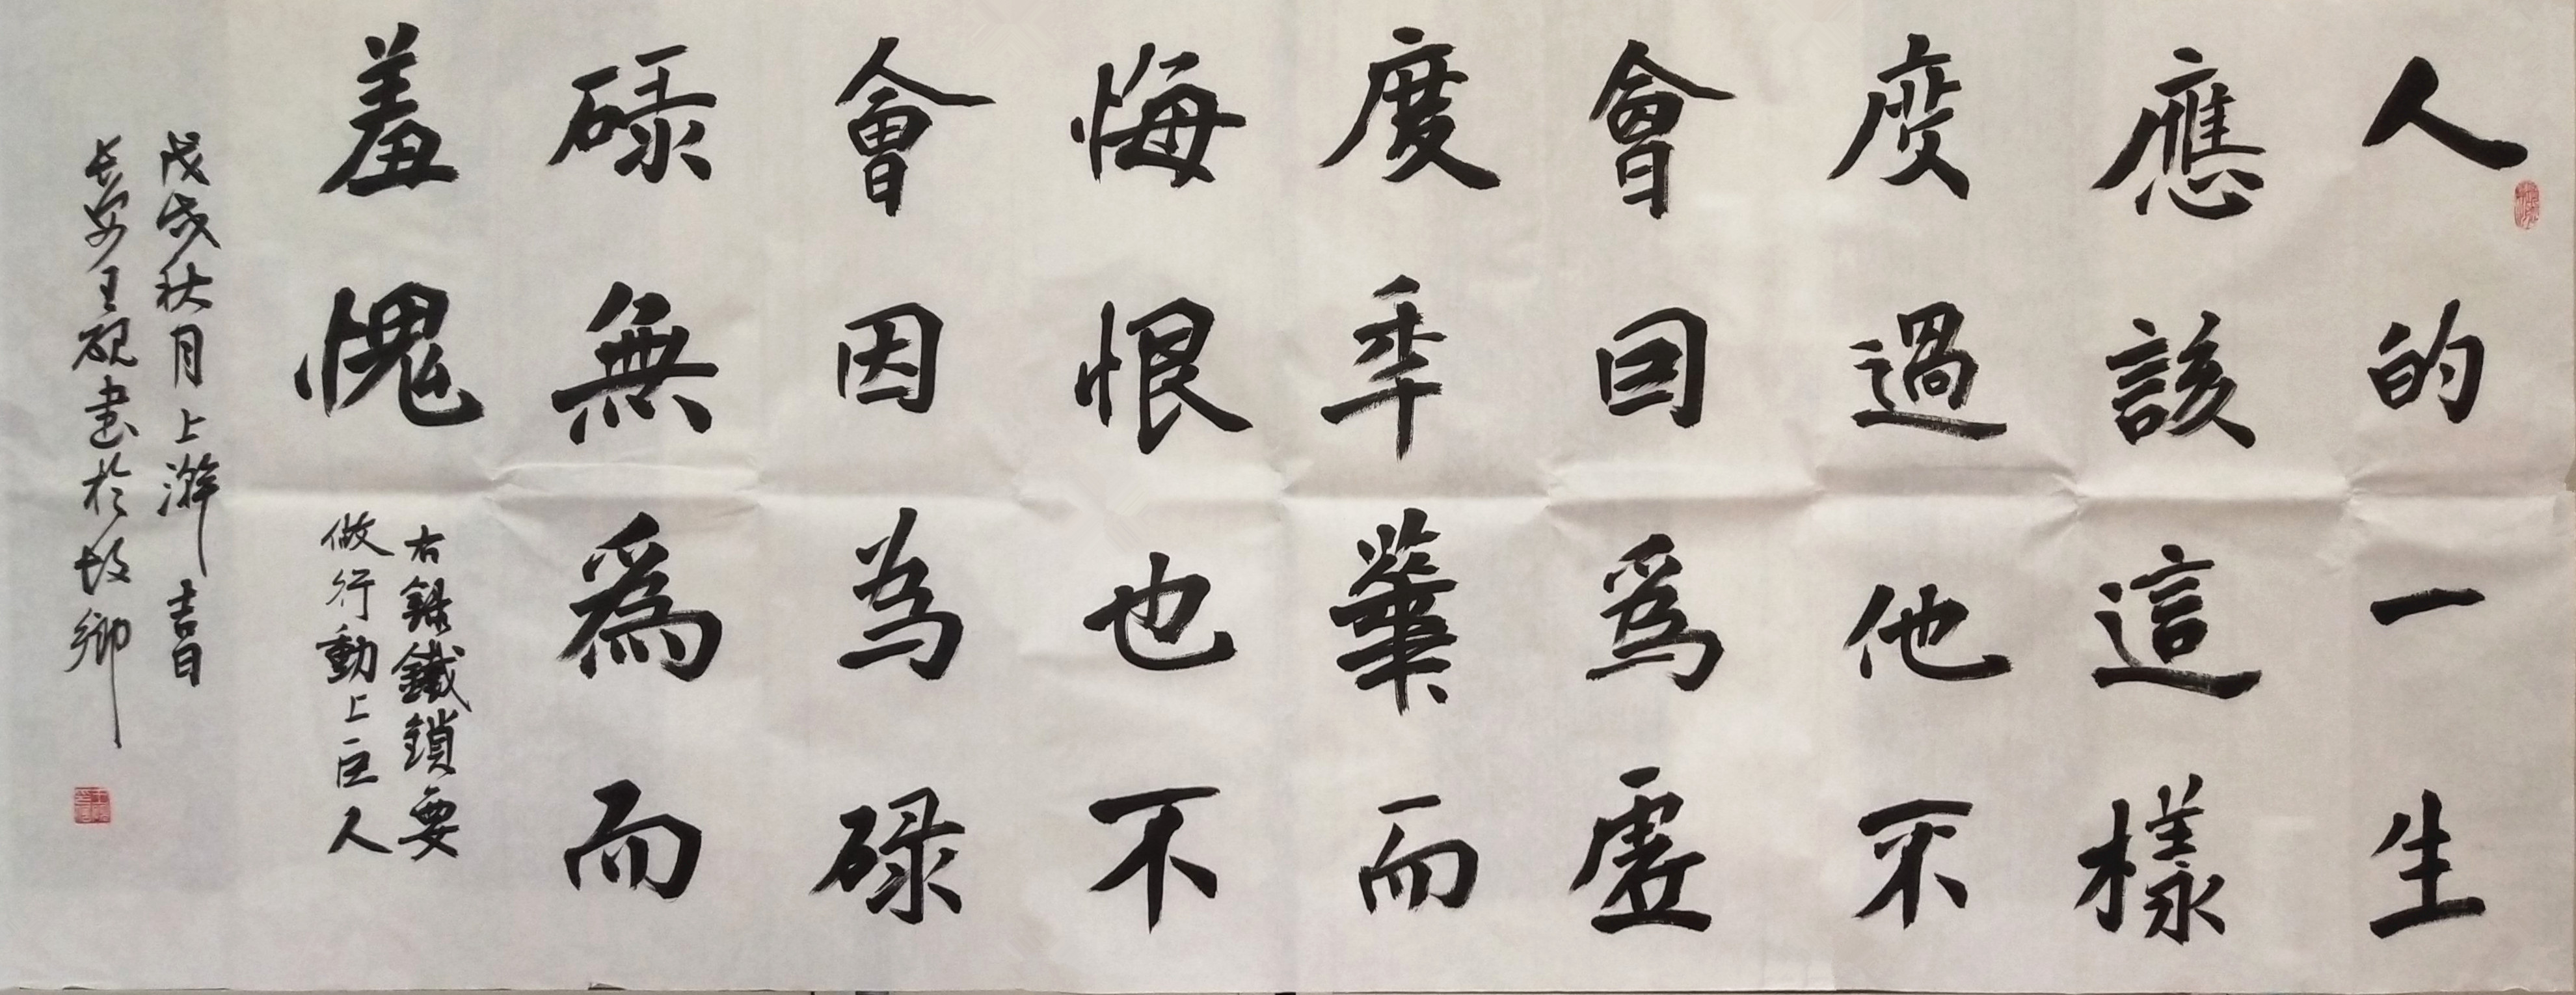 人的一生
應該這樣
度過他不
會回為虛
度年華而
悔恨也不
會因為碌
碌無為而
羞愧
右錄鐵鎖要
做行動上巨人
戊戌秋月上澣吉日
長安王硯書於故鄉